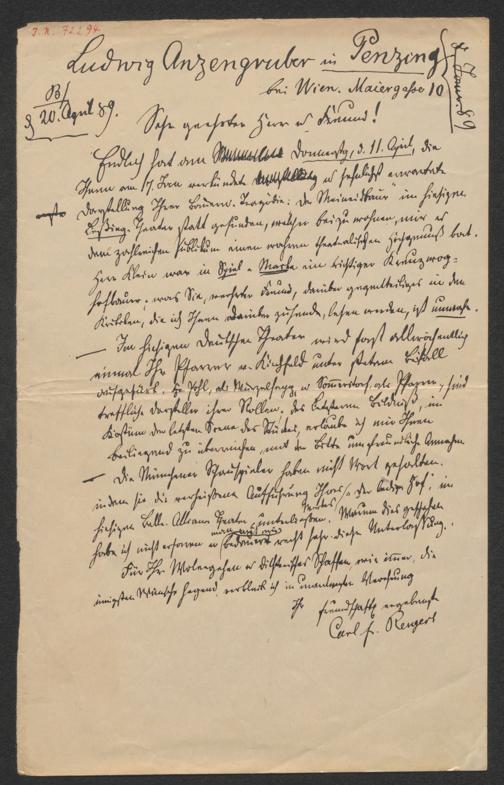 J.N. 72294
Ludwig Anzengruber in Penzing
bei Wien. Maiergasse 10
B/
20. April 89.
Sehr geehrter Herr u. Freund!
Endlich hat am Donnerstg, d. 11. April, die
Ihnen am 17. Jan verkündete u. sehnlichst erwartete
Darstellung Ihrer Bauern-Tragödie: der Meineidbauer im hiesigen
Lessing-Theater statt gefunden, welcher beizuwohnen, mir u.
dem zahlreichen Publikum einen wahren theatralischen Hochgenuß bot.
Herr Klein war in Spiel u. Maske ein richtiger Kreuzweg-
hofbauer; was Sie, verehrter Freund, darüber gegenteiliges in den
Kritiken, die ich Ihnen zusende, lesen werden, ist unwahr.
— Im hiesigen Deutschen Theater wird fast allwöchentlich
einmal Ihr Pfarrer v. Kirchfeld unter stetem Beifall
aufgeführt. als Wurzelsepp, u. Sommerstorf, als Pfarrer, sind
treffliche Darsteller ihrer Rollen. Des letzteren Bildniß, im
Kostüm der letzten Scene des Stückes, erlaube ich mir Ihnen
beiliegend zu überreichen, mit der Bitte um freundliche Annahme.
— Die Münchener Schauspieler haben nicht Wort gehalten,
indem sie die verheißene Aufführung Ihres: der ledige Hof, im
hiesigen Belle-Alliance Theater unterließen. Warum dies geschehen
habe ich nicht erfahren u. bedauert recht sehr diese Unterlassung.
Für Ihr Wolergehen u. dichterisches Schaffen, wie immer, die
innigsten Wünsche hegend, verbleib ich in unwandelbarer Verehrung
Ihr freundschaftl. ergebenster
Carl Fr.